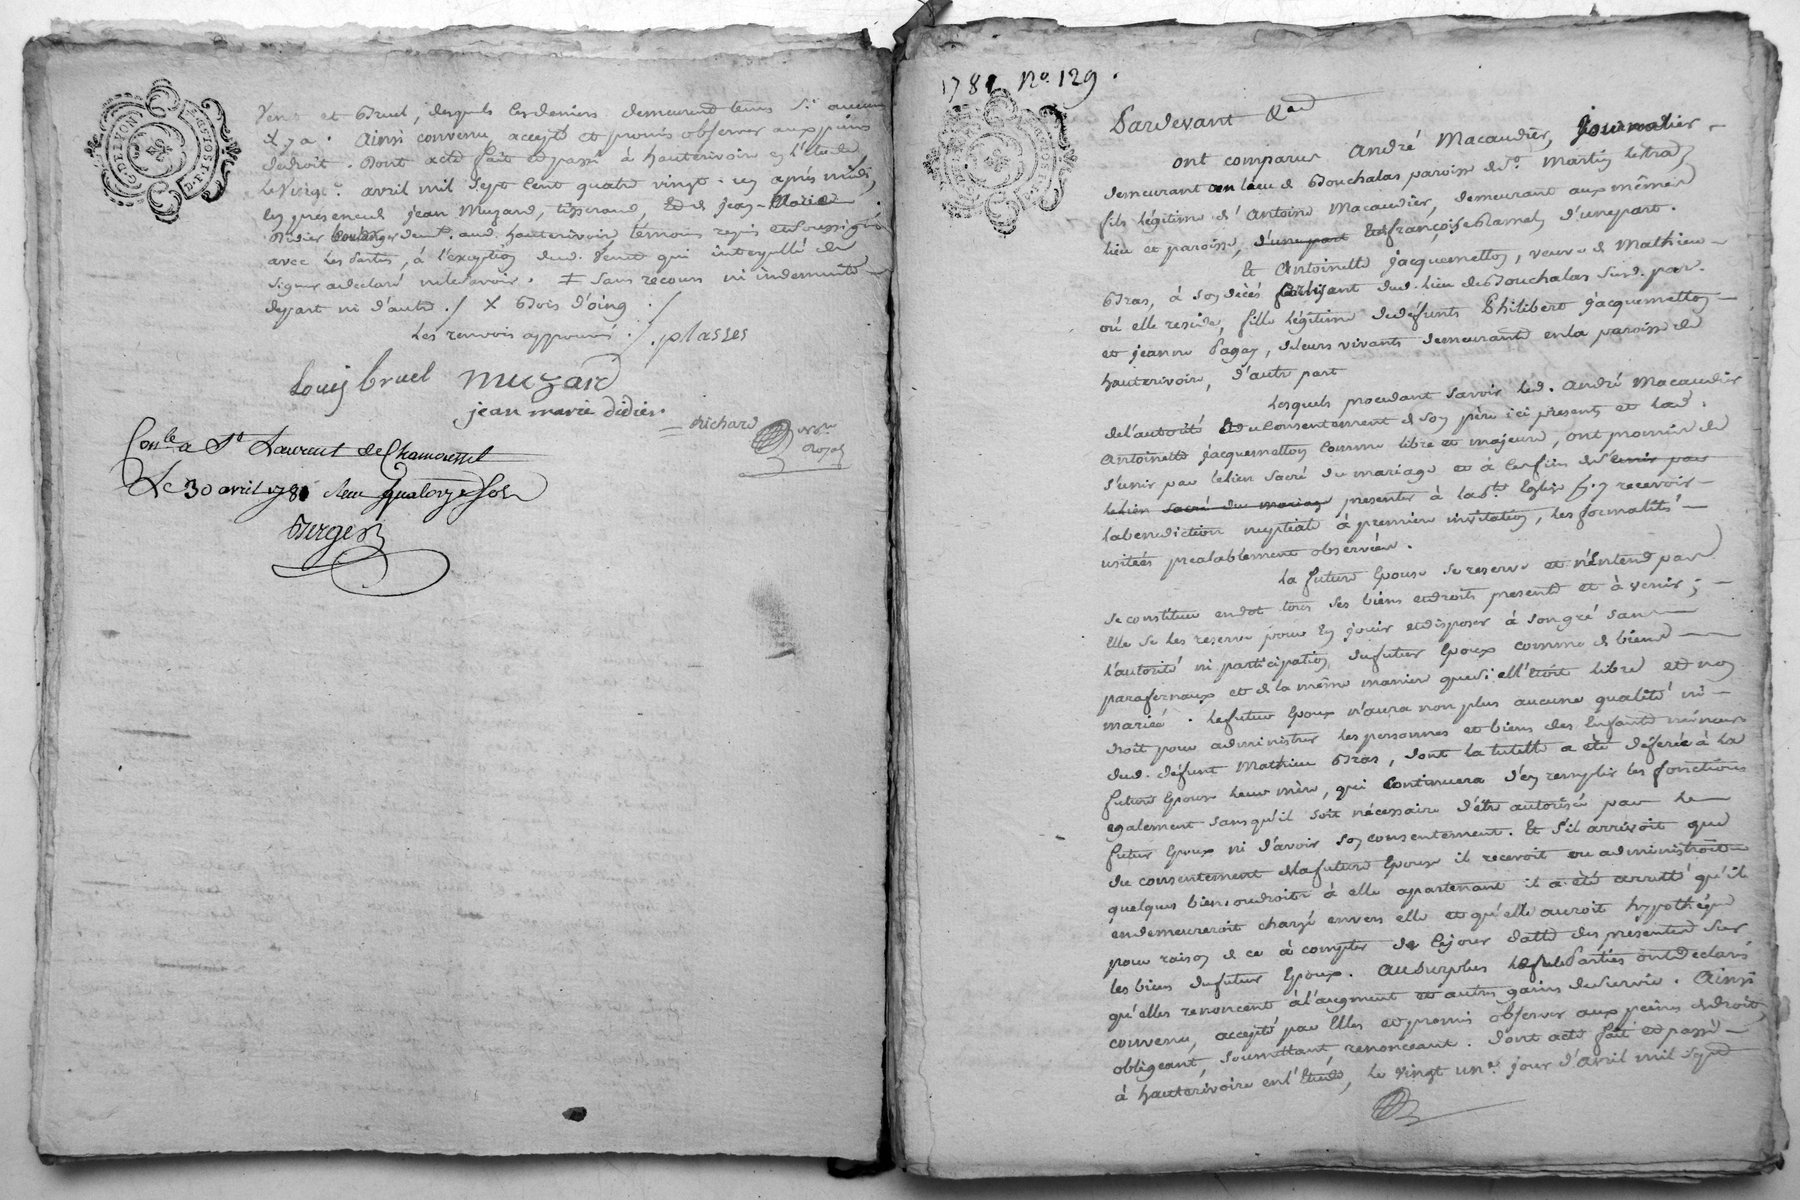 G. DE LYON
2. S. P. 10 S.
Vente et Bruel, desquels les derniers demeurent tenus s'il aucuns
y a. Ainsi convenu accepté et promis observer aux peines
de droit. Dont acte fait et passé à hauterivoire en l'étude
le vingt avril mil sept cent quatre vingt un après midi,
en présence de jean Muzard, tisserand, Et de jean-Marie
Didier Boulanger dem.t aud. hauterivoire témoins requis et soussignés
avec les parties, à l'exception dud. Vente qui interpellé de
signer a declaré ne le savoir. ‡ sans recours ni indemnité
de part ni d'autre ./ X Bois d'oing ./
Les renvois approuvés ./ . plasses
Louis bruel muzard
jean marie didier
Richard
Con.lé a St Laurent de Chamousset
Le 30 avril 1781 Reçu quatorze sols
Berger
1781 No. 129.
Pardevant &a
ont comparu André Macaudier, Journalier
demeurant au lieu de Bouchalas paroisse de St. Martin lestra,
fils légitime d'Antoine Macaudier, demeurant aux mêmes
lieu et paroisse, d'une part Et de françoise d'une part.
Et Antoinette jacquemetton, veuve de Mathieu
Bras, à son décès dud. lieu de Bouchalas susd. par.
où elle reside, fille légitime de défunts Philibert jacquemetton
et jeanne Pagay, de leurs vivants demeurants en la paroisse de
hauterivoire, d'autre part
Lesquels procedant savoir led. André Macaudier
de l'autorité Et du Consentement de son père ici présent et lad.
Antoinette jacquemetton comme libre et majeure, ont promis de
s'unir par le lien sacré du mariage et à les fins de s'unir par
le lien sacré du mariage presenter à la Ste. Eglise p.r y recevoir
la benediction nuptiale à première invitation, les formalités
usitées prealablement observées.
La future Epouse se reserve et n'Entend pas
se constituer en dot tous ses biens et droits presents et à venir;
Elle se les reserve pour En jouir et disposer à son gré sans
l'autorité ni participation du futur Epoux comme de biens
parafernaux et de la même manière que si ell'étoit libre et non
mariée. Le futur Epoux n'aura non plus aucune qualité ni
droit pour administrer les personnes et biens des Enfants mineurs
dud. défunt Mathieu Bras, dont la tutelle a été déferée à la
future Epouse leur mère, qui Continuera d'en remplir les fonctions
egalement sans qu'il soit nécessaire d'être autorisée par le
futur Epoux ni d'avoir son consentement. Et s'il arrivoit que
du consentement de la future Epouse il recevoit ou administroit
quelques biens ou droits à elle apartenant il a été arretté qu'il
en demeureroit chargé envers elle et qu'elle auroit hypothèque
pour raison de ce à compter de ce jour datte des presentes sur
les biens du futur Epoux. Au surplus les Parties ont declaré
qu'elles renoncent à l'augment et autres gains de survie. Ainsi
convenu, accepté par Elles et promis observer aux peines de droit,
obligeant, soumettant, renonceant. Dont acte fait et passé
à hauterivoire en l'Etude, le vingt un.e jour d'avril mil sept